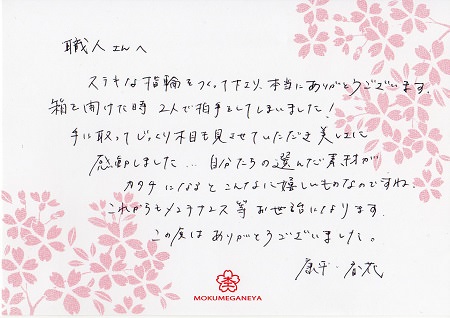 職人さんへ
ステキな指輪をつくって下さり、本当にありがとうございます。
箱を開けた時 2人で拍手をしてしまいました!
手に取ってじっくり木目も見させていただき美しさに
感動しました… 自分たちの選んだ素材が
カタチになるとこんなに嬉しいものなのですね。
これからもメンテナンス等お世話になります。
この度はありがとうございました。
康平・春花
MOKUMEGANEYA